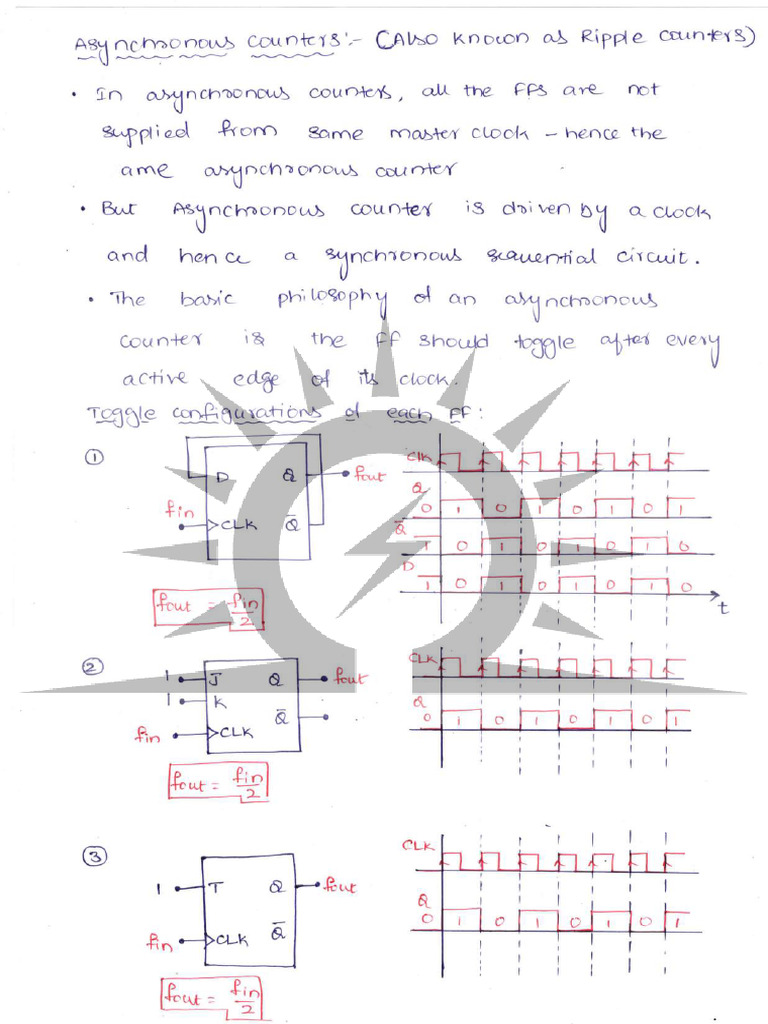 Asynchronous Counters:- (Also known as Ripple counters)
• In asynchronous counters, all the FFs are not
supplied from same master clock - hence the
ame asynchronous counter
• But Asynchronous counter is driven by a clock
and hence a synchronous sequential circuit.
• The basic philosophy of an asynchronous
counter is the FF should toggle after every
active edge of its clock.
Toggle configurations of each FF:
①
D Q fout
fin CLK Q̅
fout = fin/2
Clk
Q
0 1 0 1 0 1 0 1
Q̅
1 0 1 0 1 0 1 0
D
1 0 1 0 1 0 1 0
t
②
1 J Q fout
1 K Q̅
fin CLK
fout = fin/2
CLK
Q
0 1 0 1 0 1 0 1
③
1 T Q fout
fin CLK Q̅
fout = fin/2
CLK
Q
0 1 0 1 0 1 0 1